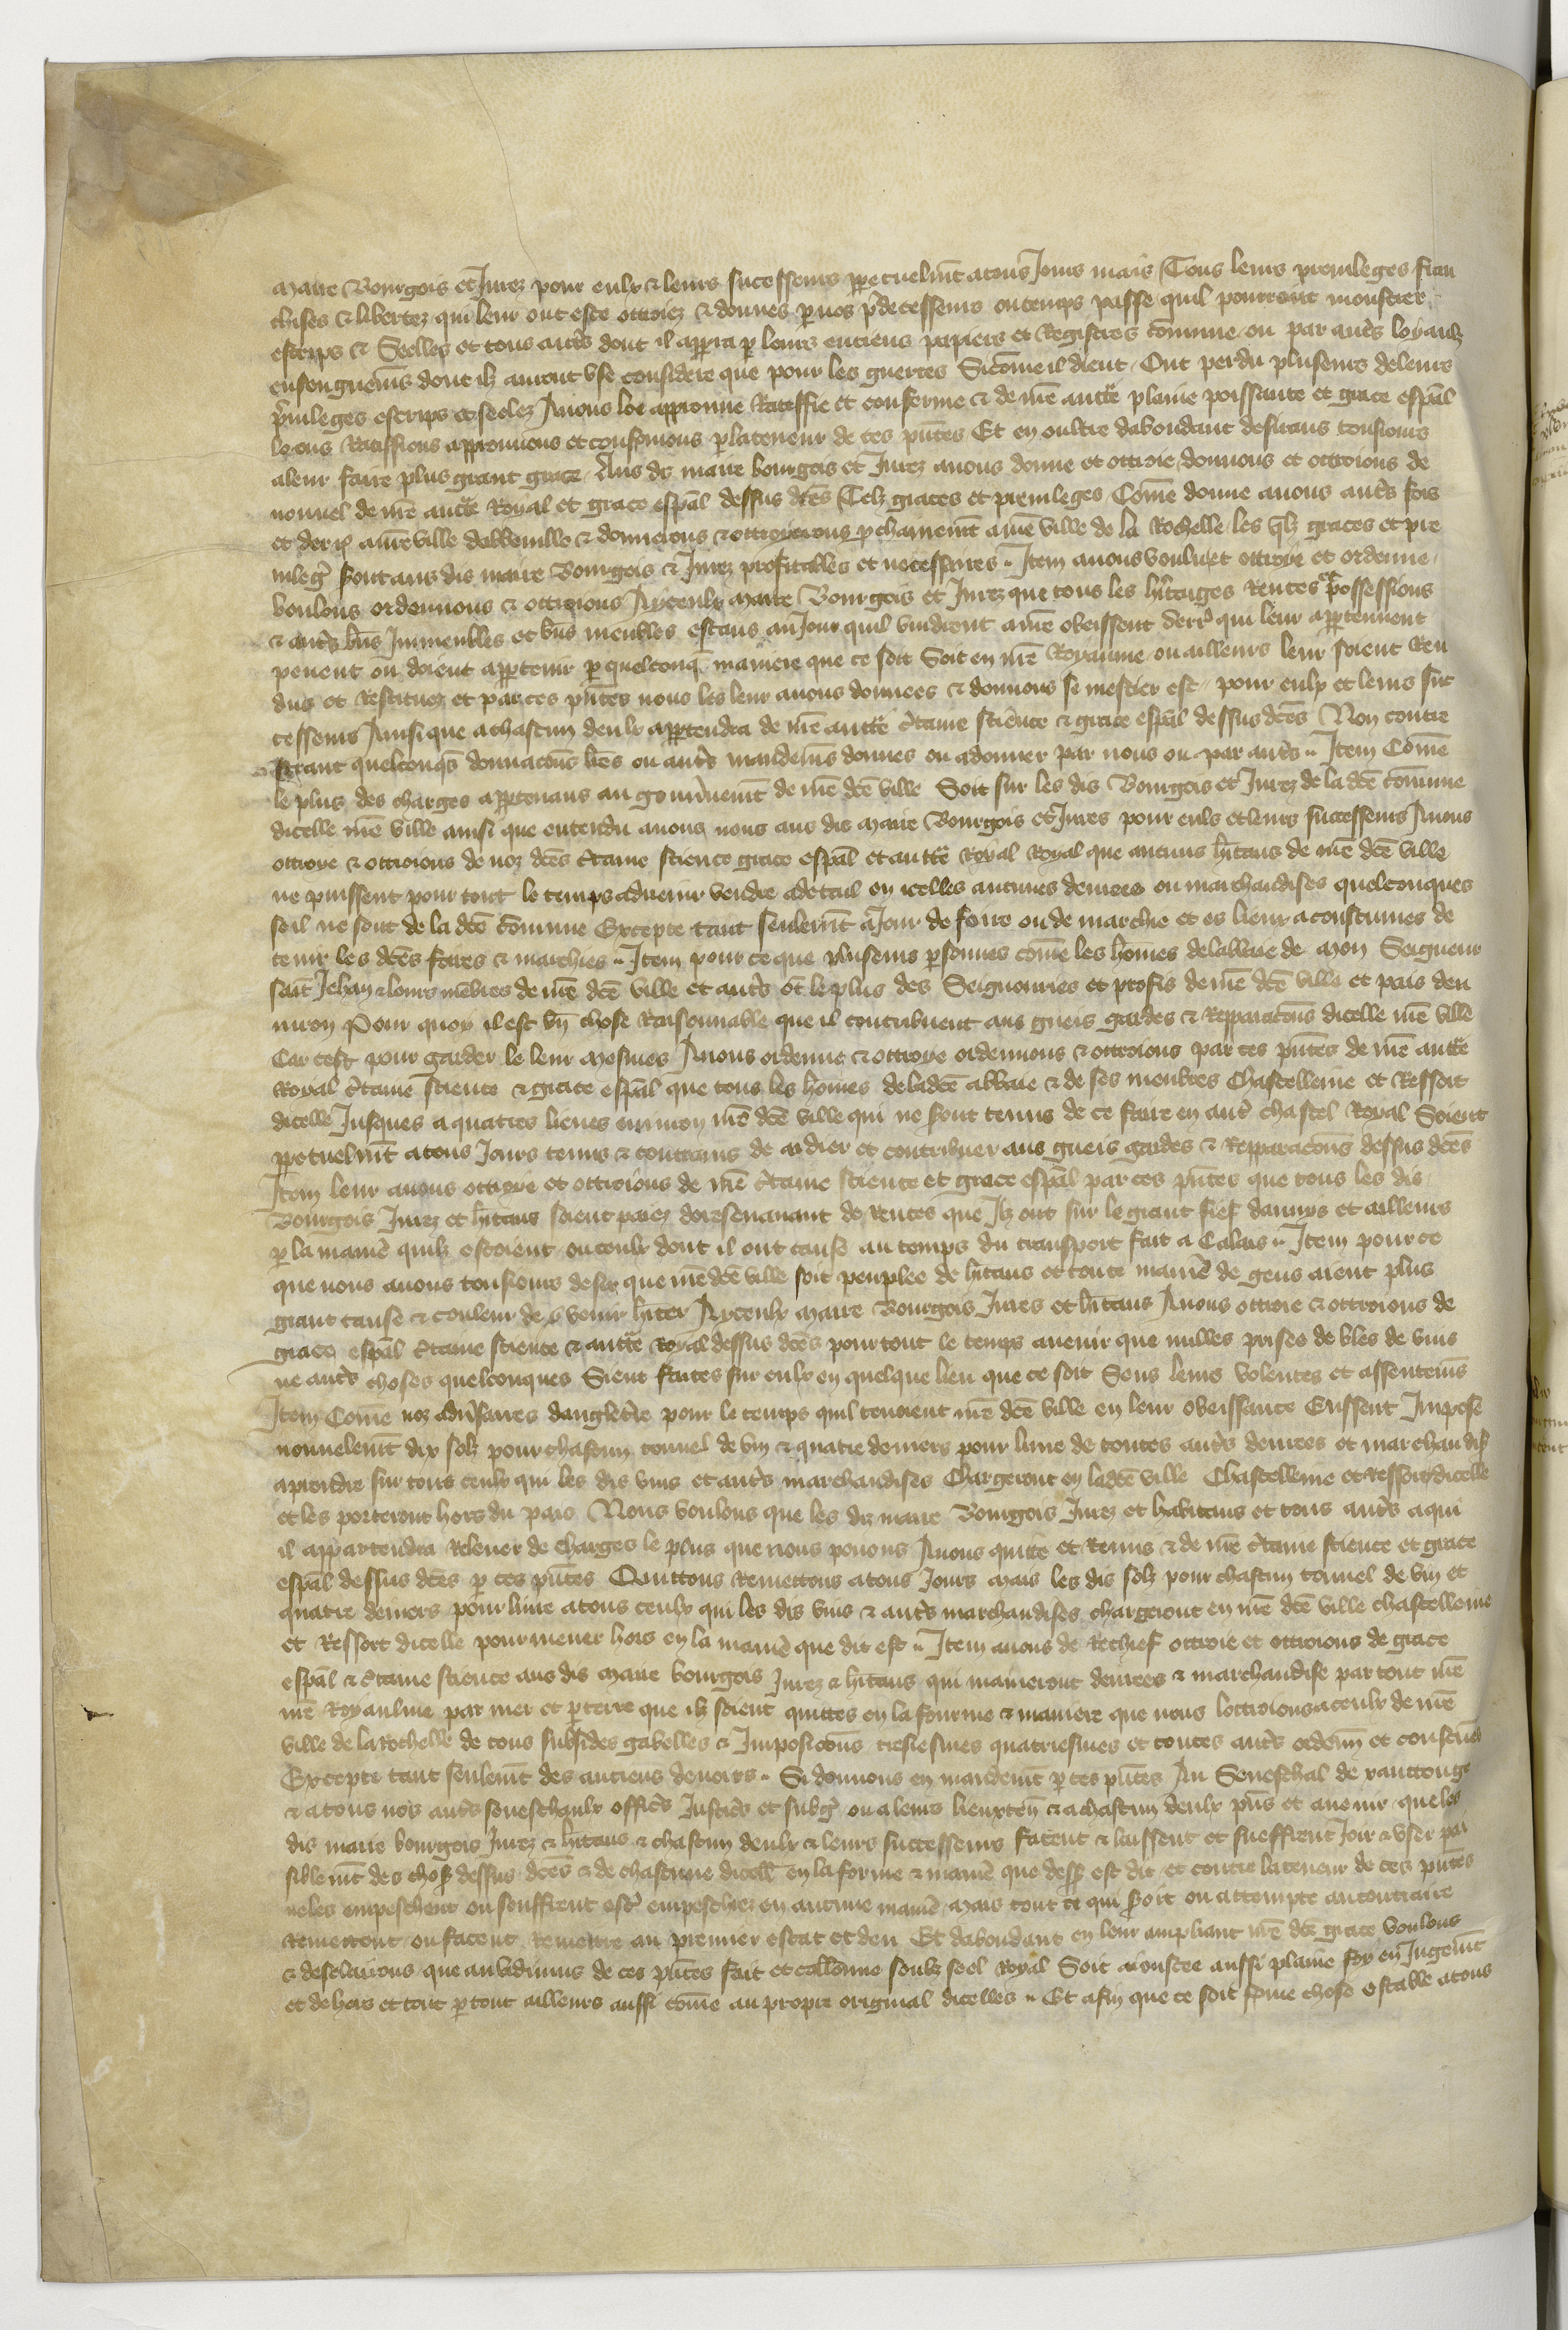 Maire Bourgois et Jurez pour eulx & leurs sucesseurs ppetuelmt atous Jours mais Tous leurs privileges fran
chises & libertez qui leur ont este ottroiez & donnes p nos pdecesseurs ou temps passe quil pourront monstrer
escrips & Seelles et tous autrs dont il apperra p leurs enciens papiers et Registres comune ou par autrs loyaulx
ensengnemens dont ilz auront use considere que pour les guerres Sicome il dient Ont perdu pluseurs deleurs
privileges escrips et seelez Avons loe approuve Rateffie et conferme & de nre autte plaine poissance et grace espal
loons Ratiffions approuvons et confermons p lateneur de ces pntes Et en oultre dabondant desirans tousiours
aleur faire plus grant grace Aus ds maire bourgois et Jurez avons donne et ottroie donnons et ottroions de
nouvel de nre autte Royal et grace espal dessus dces Telz graces et privileges Come donne avons autrs fois
et anre ville dabbeville & donnerons & ottroyerons pchainemt anre ville de la Rochelle les qlz graces et pre
vileges sont aus dis maire Bourgois & Jurez profitables et necessaires Item avons voulu et ottroye et ordenne
voulons ordennons & ottroions Ayceulx Maire Bourgois et Jurez que tous les hritages Rentes et possessions
& autrs bns Immeubles et bns meubles estans au Jour quil vindrent anre obeissent derr qui leur appertennent
peuent ou doient appertenir p quelconq maniere que ce soit Soit en nre Royaume ou ailleurs leur soient Ren
dus et Restituez et par ces pntes nous les leur avons donnees & donnons se mestier est pour eulx et leurs suc
cesseurs Ainsi que a chascun deulx appertendra de nre autte ctaine science & grace espal dessus dces Non contre
strant quelconqs donnacons lres ou autrs mandemens donnes ou adonner par nous ou par autrs Item Come
le plus des charges appertenans au gouvnemt de nre dce ville Soit sur les dis Bourgois et Jurez de la dce comune
dicelle nre ville ainsi que entendu avons nous aus dis Maire Bourgois et Jures pour euls et leurs successeurs Avons
ottroye & ottroions de noz dces ctaine science grace espal et autte Royal Royal que aucuns hitans de nre dce ville
ne puissent pour tout le temps advenir vendre adetail en icelles aucunes denrees ou marchandises quelconques
se il ne sont de la dce comune Excepte tant seulemt a Jour de foire ou de marchie et es lieux acoustumes de
tenir les dces foires & marchies Item pour ce que pluseurs psonnes come les homes delabbaie de Mon Seigneur
saint Jehan & leurs mebres de nre dce ville et autrs ot le plus des Seignouries et profis de nre dce ville et pais den
viron Pour quoy il est un chose Raisonnable que il contribuent aus gueis gardes & Repparacons dicelle nre ville
Car cest pour garder le leur Mesmes Avons ordenne & ottroye ordennons & ottroions par ces pntes de nre autte
Royal ctaine science & grace espal que tous les homes deladce abbaie & de ses menbres Chastellenie et Ressort
dicelle Jusques a quatres lieues environ nre dce ville qui ne sont tenus de ce faire en autr chastel Royal Soient
ppetuelmt atous Jours tenus & contrains de aidier et contribuer aus gueis gardes & Repparacons dessus dces
Item leur avons ottroye et ottroions de nre ctaine science et grace espal par ces pntes que tous les dis
Bourgois Jurez et hitans soient paiez doresenavant de Rentes que Ilz ont sur le grant fief daunys et ailleurs
p la manie quilz estoient ou ceulx dont il ont cause au temps du transport fait a Calais Item pour ce
que nous avons tousiours desir que nre dce ville soit peuplee de hitans et toute manie de gens aient plus
grant cause & couleur de y venir hiter Ayceulx Maire Bourgois Jures et hitans Avons ottroie & ottroions de
grace espal ctaine science & autte Royal dessus dces pour tout le temps avenir que nulles prises de bles de vins
ne autrs choses quelconques Sient faites sur eulx en quelque lieu que ce soit Sens leurs volentes et assentemens
Item Come noz adversaires dangletre pour le temps quil tenoient nre dce ville en leur obeissance Eussent Impose
nouvelemt dix solz pour chascun tonnel de vin & quatre deniers pour livre de toutes autrs denrees et marchandis
aprendre sur tous ceulx qui les dis vins et autrs marchandises Chargeront en ladce ville Chastellenie et Ressort dicelle
et les porteront hors du pais Nous voulons que les diz maire Bourgois Jurez et habitans et tous autrs aqui
il appartendra Relever de charges le plus que nous povons Avons quitte et Remis & de nre ctaine science et grace
espal dessus dces p ces pntes Quittons Remettons atous Jours Mais les dis solz pour chascun tonnel de vin et
quatre deniers pour livre atous ceulx qui les dis vins & autrs marchandises chargeront en nre dce ville chastellenie
et Ressort dicelle pour mener hors en la manie que dit est Item avons de Rechief ottroie et ottroions de grace
espal & ctaine science aus dis Maire bourgois Jurez & hitans qui maineront denrees & marchandise par tout nre
nre Royaulme par mer et p terre que ilz soient quittes en la fourme & maniere que nous lottroions aceulx de nre
ville de la Rochelle de tous subsides gabelles & Imposicons tresiesmes quatriesmes et toutes autrs
Excepte tant seulemt des anciens devoirs Si donnons en mandemt p ces pntes Au Seneschal de xanctonge
& atous nos autrs seneschaulx officrs Justicrs et subgs ou a leurs lieuxten & a chascun deulx pns et avenir que les
dis maire bourgois Jurez & hitans & chascun deulx & leurs successeurs facent & laissent et sueffrent Joir & user pai
siblemt des choses dessus dces & de chascune dicelle en la forme & manie que dess est dit et contre lateneur de ces pntes
neles empeschent ou seuffrent estr empeschiez en aucune manie Mais tout ce qui soit ou attempte aucontraire
Remettent ou facent Remettre au premier estat et deu Et dabondant en leur ampliant nre dce grace Voulons
& desclairons que au vidimus de ces pntes fait et collonne soubz seel Royal Soit aioustee aussi plaine foy en Jugemt
et dehors et tout p tout ailleurs aussi come au propre original dicelles Et afin que ce soit ferme chose estable atous